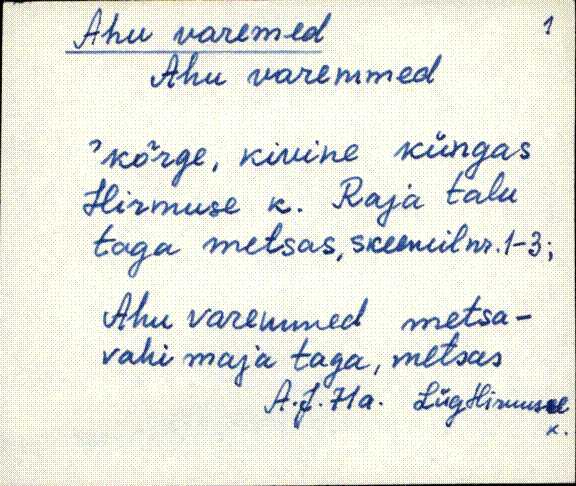 Ahu varemed
1
Ahu varemmed
'kõrge, kivine küngas
Hirmuse k. Raja talu
taga metsas, skeemil nr. 1-3;
Ahu varemmed metsa-
vahi maja taga, metsas
A.J. 71a. Lüg Hirmuse
k.